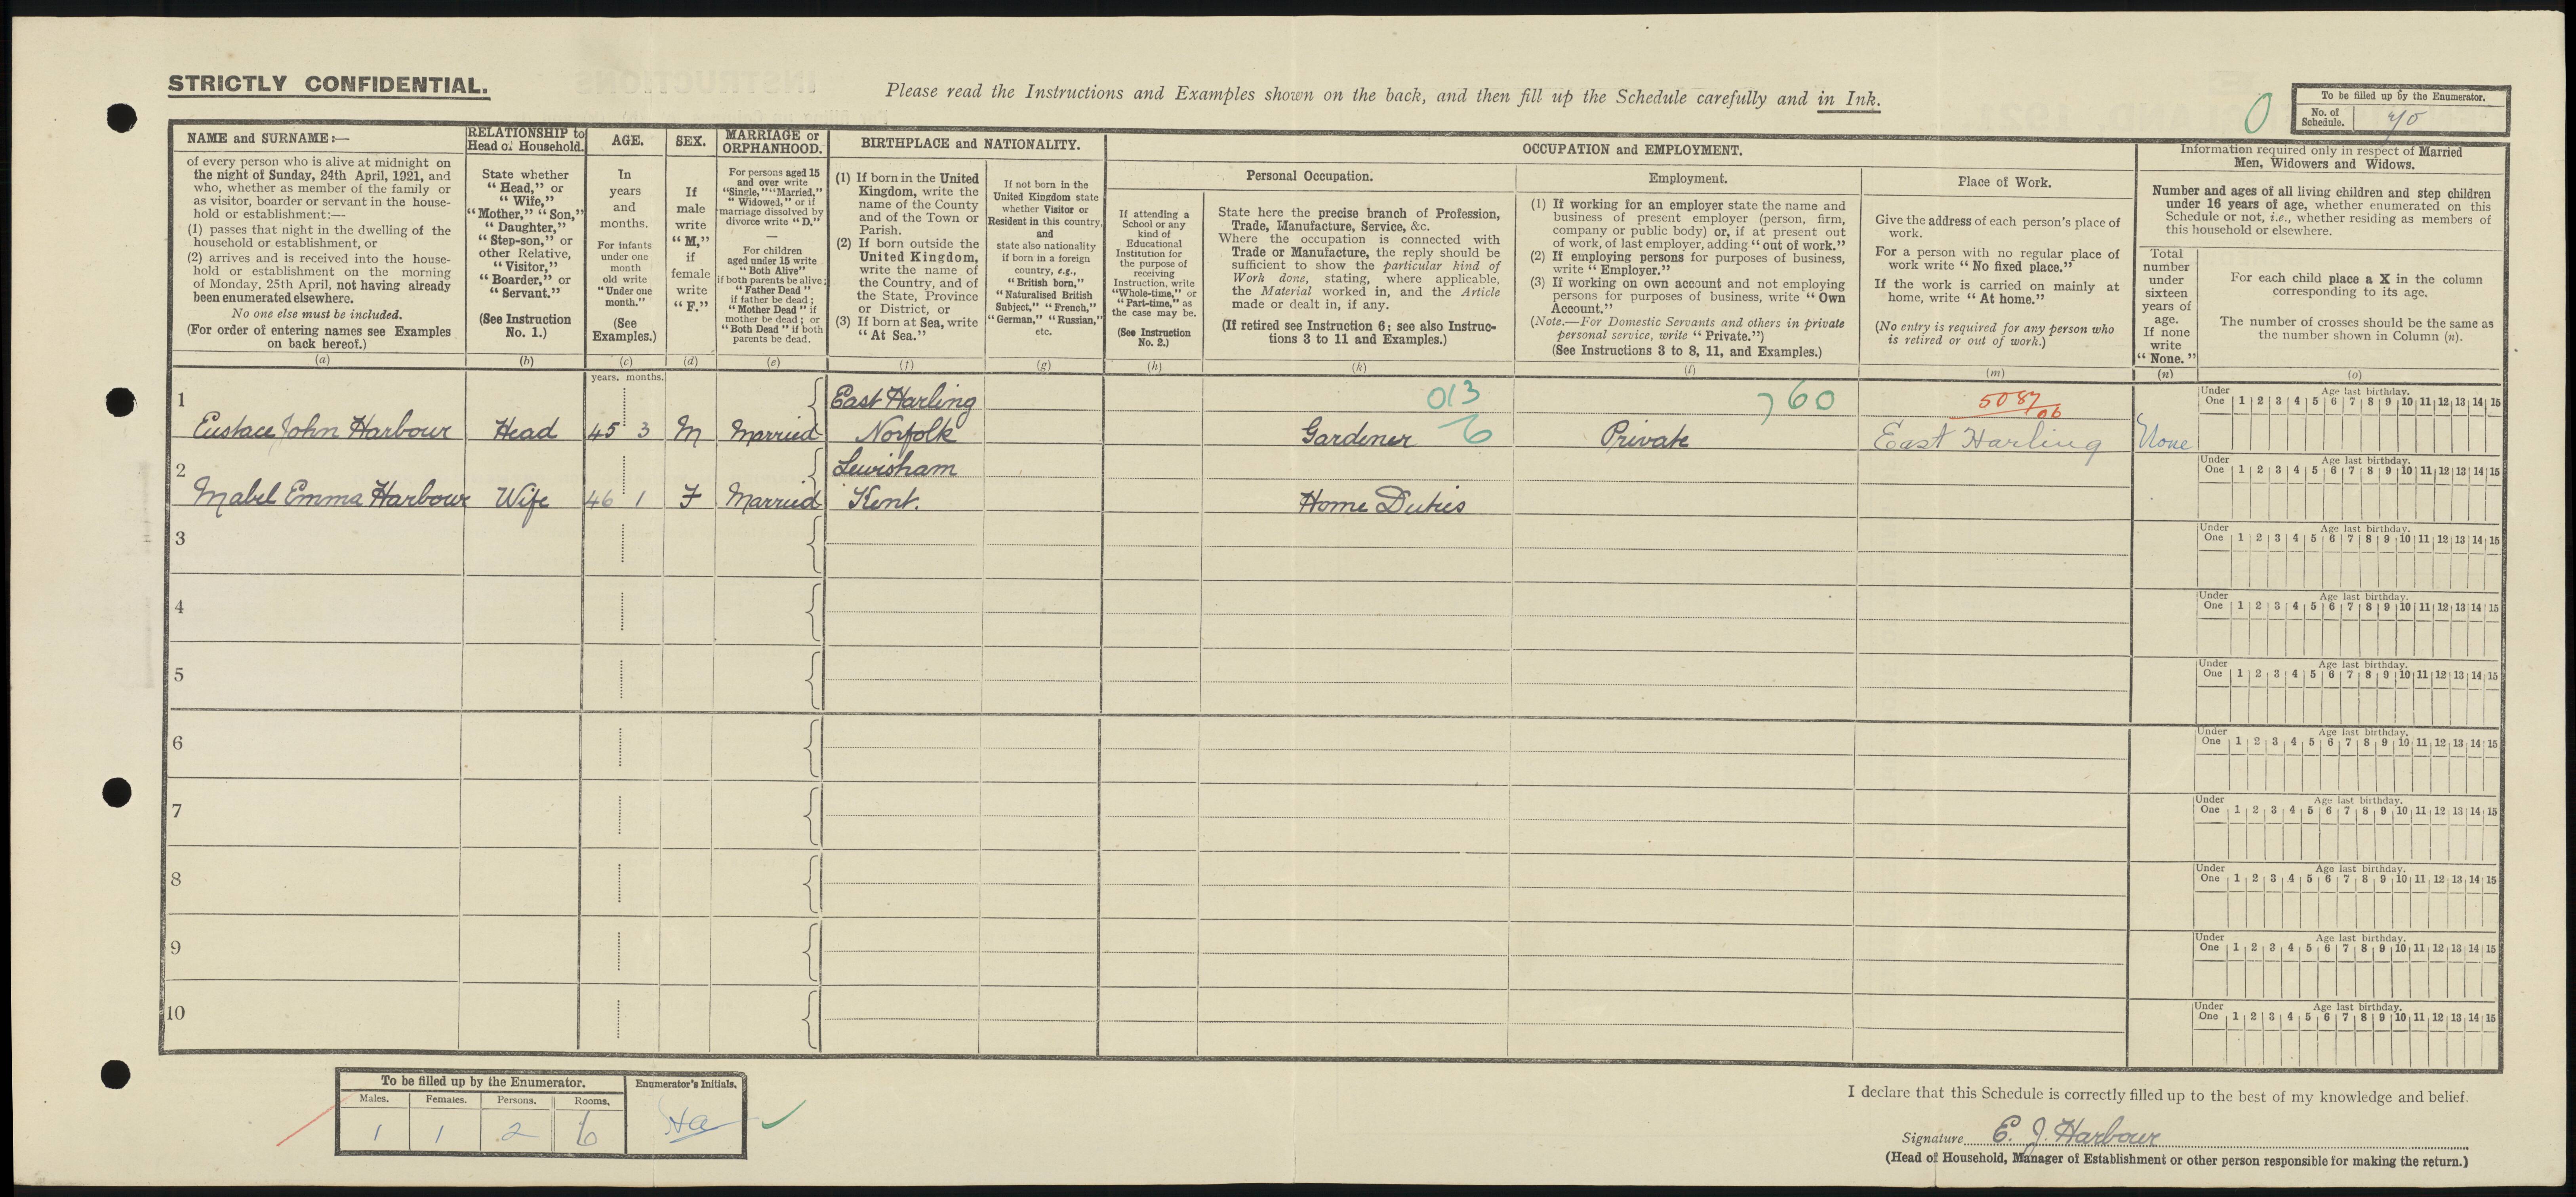 STRICTLY CONFIDENTIAL.
Please read the Instructions and Examples shown on the back, and then fill up the Schedule carefully and in Ink.
0
To be filled up by the Enumerator.
No. of Schedule.
NAME and SURNAME:—
of every person who is alive at midnight on
the night of Sunday, 24th April, 1921, and
who, whether as member of the family or
as visitor, boarder or servant in the house-
hold or establishment:—
(1) passes that night in the dwelling of the
household or establishment, or
(2) arrives and is received into the house-
hold or establishment on the morning
of Monday, 25th April, not having already
been enumerated elsewhere.
No one else must be included.
(For order of entering names see Examples
on back hereof.)
(a)
RELATIONSHIP to
Head of Household.
State whether
"Head," or
"Wife,"
"Mother," "Son,"
"Daughter,"
"Step-son," or
other Relative,
"Visitor,"
"Boarder," or
"Servant."
(See Instruction
No. 1.)
(b)
AGE.
In
years
and
months.
For infants
under one
month
old write
"Under one
month."
(See
Examples.)
(c)
SEX.
If
male
write
"M,"
if
female
write
"F."
(d)
MARRIAGE or
ORPHANHOOD.
For persons aged 15
and over write
"Single," "Married,"
"Widowed," or if
marriage dissolved by
divorce write "D."
—
For children
aged under 15 write
"Both Alive"
if both parents be alive;
"Father Dead"
if father be dead;
"Mother Dead" if
mother be dead; or
"Both Dead" if both
parents be dead.
(e)
BIRTHPLACE and NATIONALITY.
(1) If born in the United
Kingdom, write the
name of the County
and of the Town or
Parish.
(2) If born outside the
United Kingdom,
write the name of
the Country, and of
the State, Province
or District, or
(3) If born at Sea, write
"At Sea."
(f)
If not born in the
United Kingdom state
whether Visitor or
Resident in this country,
and
state also nationality
if born in a foreign
country, e.g.,
"British born,"
"Naturalised British
Subject," "French,"
"German," "Russian,"
etc.
(g)
OCCUPATION and EMPLOYMENT.
If attending a
School or any
kind of
Educational
Institution for
the purpose of
receiving
Instruction, write
"Whole-time," or
"Part-time," as
the case may be.
(See Instruction
No. 2.)
(h)
Personal Occupation.
State here the precise branch of Profession,
Trade, Manufacture, Service, &c.
Where the occupation is connected with
Trade or Manufacture, the reply should be
sufficient to show the particular kind of
Work done, stating, where applicable,
the Material worked in, and the Article
made or dealt in, if any.
(If retired see Instruction 6; see also Instruc-
tions 3 to 11 and Examples.)
(k)
Employment.
(1) If working for an employer state the name and
business of present employer (person, firm,
company or public body) or, if at present out
of work, of last employer, adding "out of work."
(2) If employing persons for purposes of business,
write "Employer."
(3) If working on own account and not employing
persons for purposes of business, write "Own
Account."
(Note.—For Domestic Servants and others in private
personal service, write "Private.")
(See Instructions 3 to 8, 11, and Examples.)
(l)
Place of Work.
Give the address of each person's place of
work.
For a person with no regular place of
work write "No fixed place."
If the work is carried on mainly at
home, write "At home."
(No entry is required for any person who
is retired or out of work.)
(m)
Information required only in respect of Married
Men, Widowers and Widows.
Number and ages of all living children and step children
under 16 years of age, whether enumerated on this
Schedule or not, i.e., whether residing as members of
this household or elsewhere.
Total
number
under
sixteen
years of
age.
If none
write
"None."
(n)
For each child place a X in the column
corresponding to its age.
The number of crosses should be the same as
the number shown in Column (n).
(o)
years. months.
1
East Harling
013
760
5087/06
Under One
Age last birthday.
1 2 3 4 5 6 7 8 9 10 11 12 13 14 15
Eustace John Harbour Head 45 3 M Married Norfolk Gardener 6 Private East Harling None
2
Lewisham
Under One
Age last birthday.
1 2 3 4 5 6 7 8 9 10 11 12 13 14 15
Mabel Emma Harbour Wife 46 1 F Married Kent. Home Duties
3
Under One
Age last birthday.
1 2 3 4 5 6 7 8 9 10 11 12 13 14 15
4
Under One
Age last birthday.
1 2 3 4 5 6 7 8 9 10 11 12 13 14 15
5
Under One
Age last birthday.
1 2 3 4 5 6 7 8 9 10 11 12 13 14 15
6
Under One
Age last birthday.
1 2 3 4 5 6 7 8 9 10 11 12 13 14 15
7
Under One
Age last birthday.
1 2 3 4 5 6 7 8 9 10 11 12 13 14 15
8
Under One
Age last birthday.
1 2 3 4 5 6 7 8 9 10 11 12 13 14 15
9
Under One
Age last birthday.
1 2 3 4 5 6 7 8 9 10 11 12 13 14 15
10
Under One
Age last birthday.
1 2 3 4 5 6 7 8 9 10 11 12 13 14 15
To be filled up by the Enumerator.
Enumerator's Initials.
Males. Females. Persons. Rooms.
1 1 2 6
I declare that this Schedule is correctly filled up to the best of my knowledge and belief.
Signature E. J. Harbour
(Head of Household, Manager of Establishment or other person responsible for making the return.)